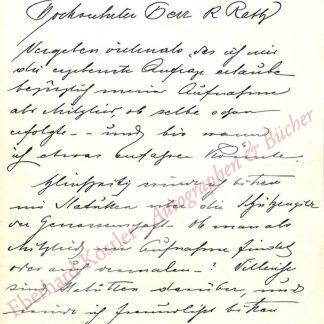 Hochverehrter Herr R Rath
Vergeben vielmals, das ich mir
die ergebenste Anfrage erlaube
bezüglich meiner Aufnahme
als Mitglied, ob selbe schon
erfolgte -- und bis wann
ich etwas erfahren könnte.
Gleichzeitig würde ich bitten
um Statuten über die Schützengilde
der Genossenschaft. Ob man als
Mitglied, um Aufnahme findet
oder auch vermalen -? Vielleicht
sind Statuten darüber, und
würde ich freundlichst bitten
Eberhard Köstler - Autographen & Bücher